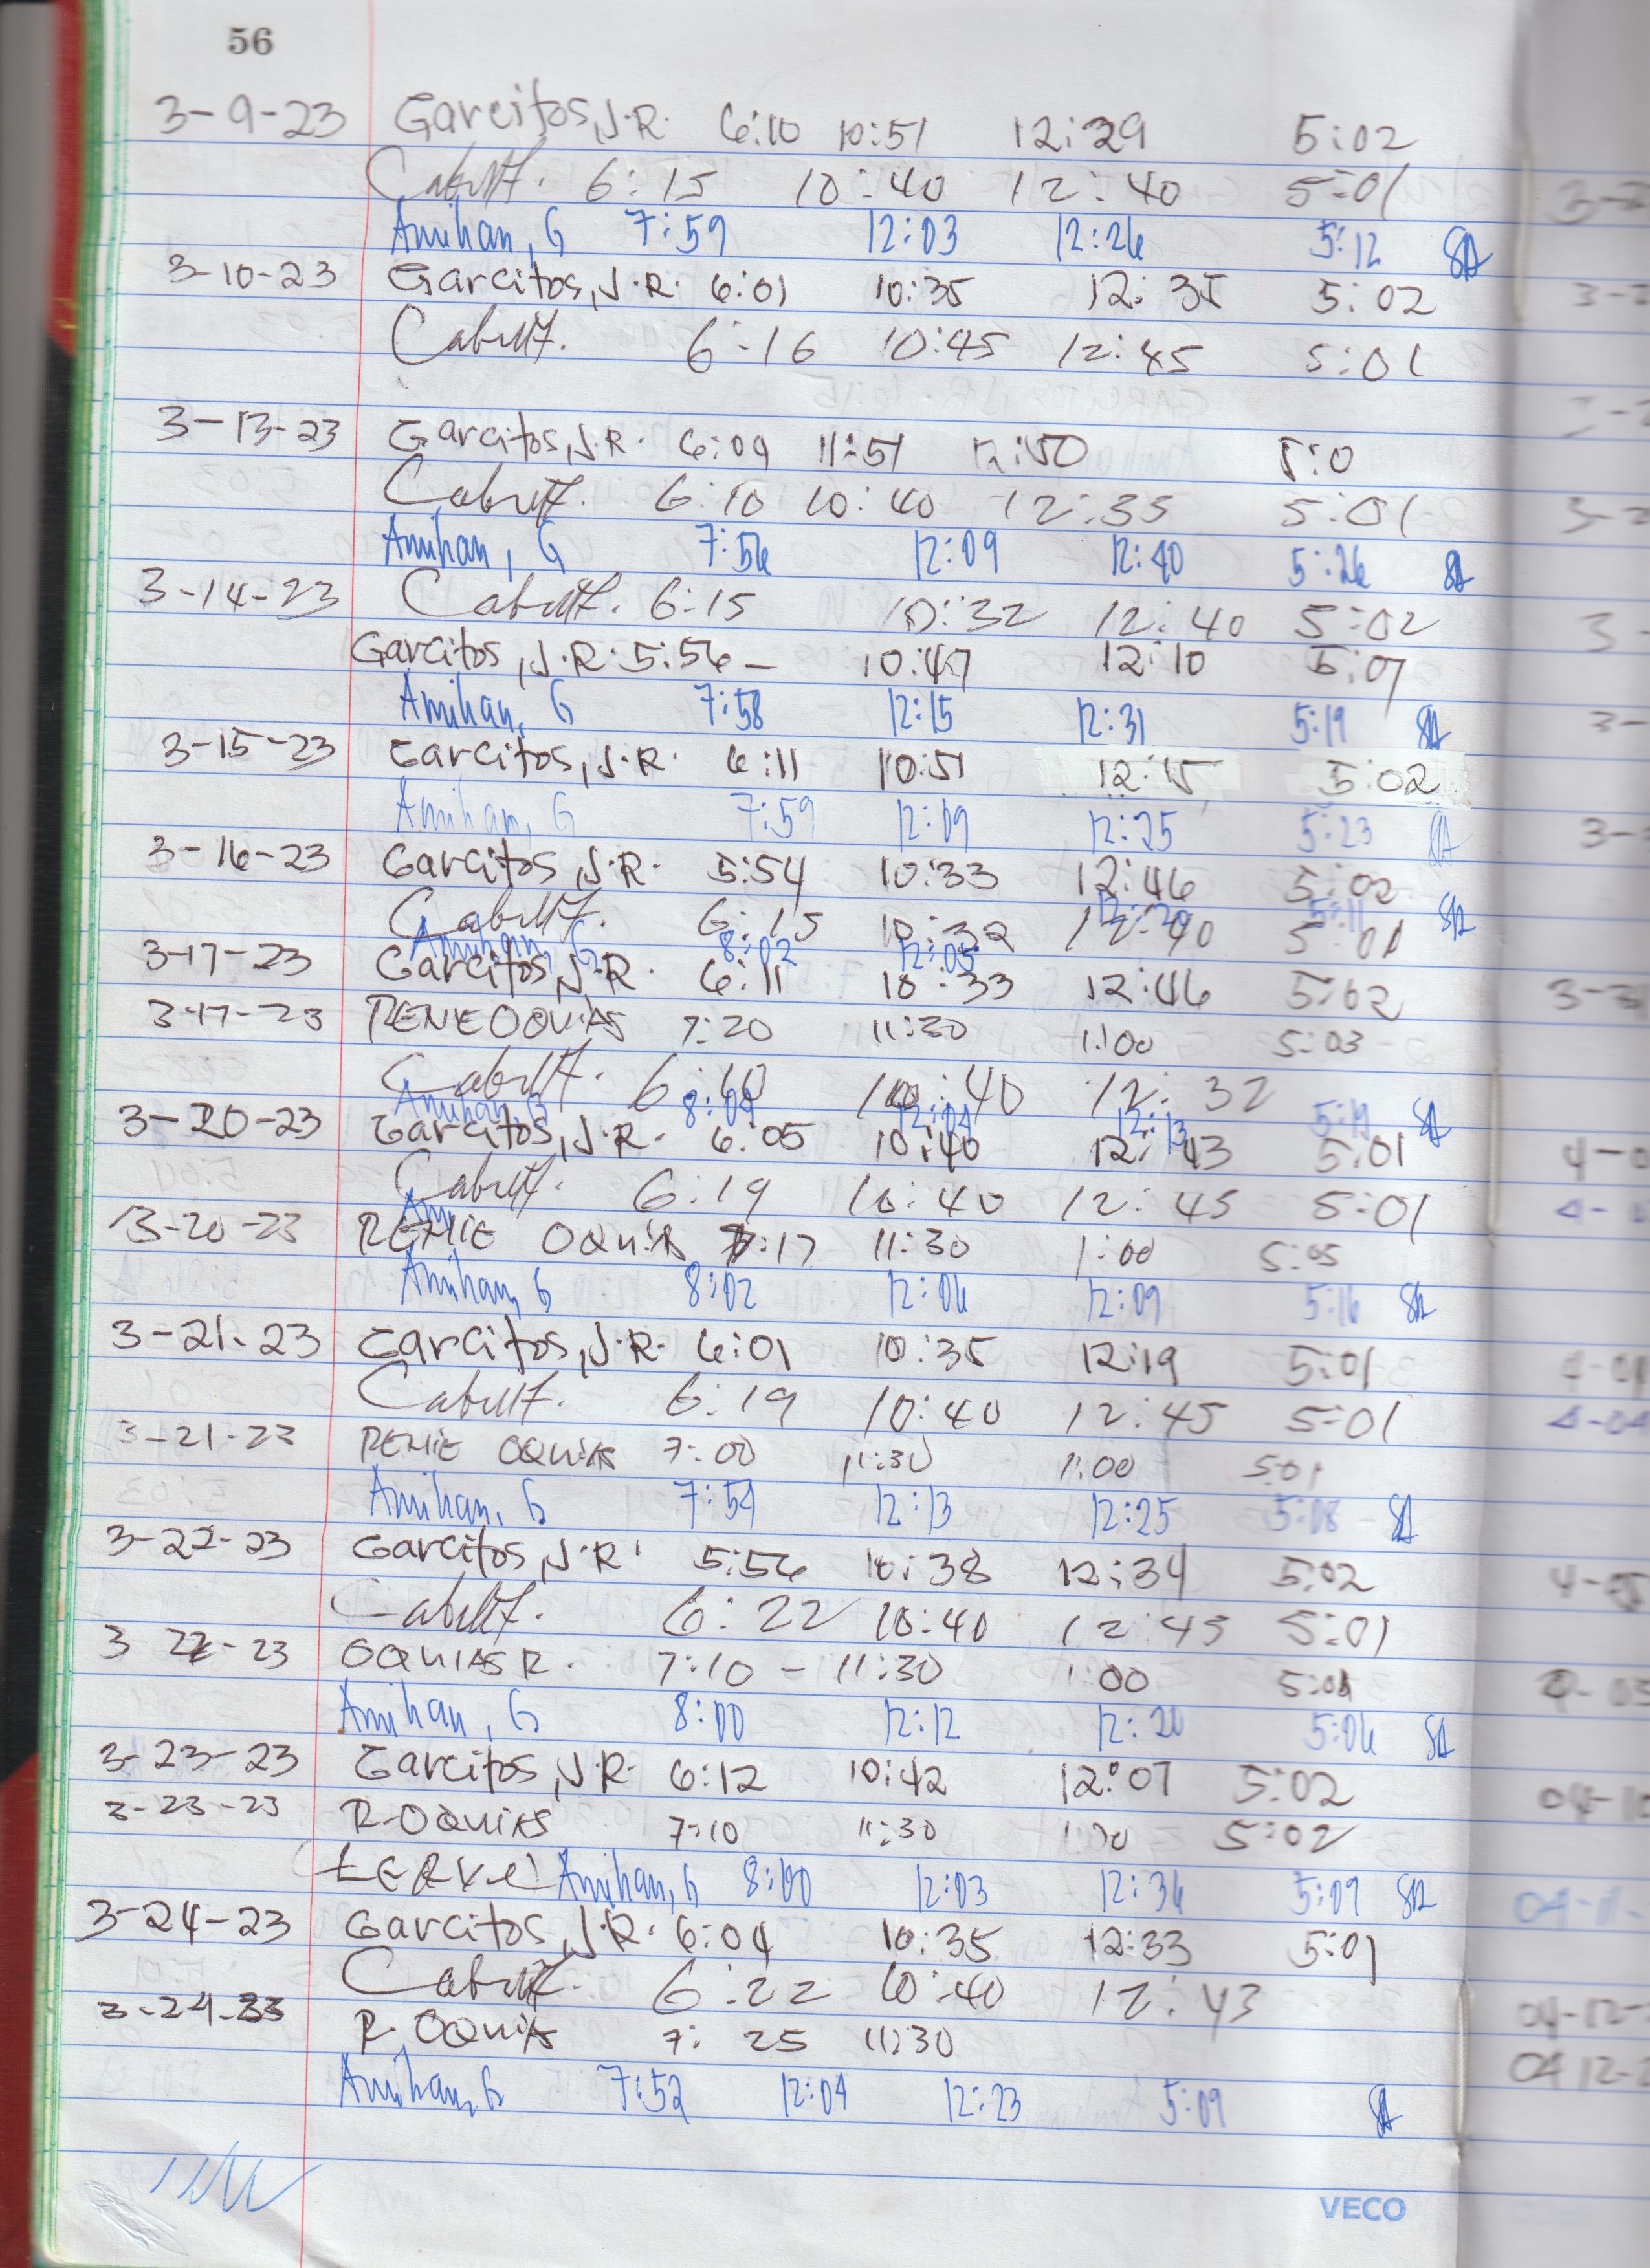 56
3-9-23 Garcitos, J.R. 6:10 10:51 12:29 5:02
6:15 10:40 12:40 5:01
Amihan, G 7:59 12:03 12:26 5:12
3-10-23 Garcitos, J.R. 6:01 10:35 12:35 5:02
6:16 10:45 12:45 5:01
3-13-23 Garcitos, J.R. 6:09 11:51 12:50 5:0
6:10 10:40 12:35 5:01
Amihan, G 7:56 12:09 12:40 5:26
3-14-23 6:15 10:32 12:40 5:02
Garcitos, J.R. 5:56 - 10:47 12:10 5:07
Amihan, G 7:58 12:15 12:31 5:19
3-15-23 Garcitos, J.R. 6:11 10:51 12:15 5:02
Amihan, G 7:59 12:09 12:25 5:23
3-16-23 Garcitos, J.R. 5:54 10:33 12:46 5:02
6:15 10:32 12:40 5:01
Amihan, G 8:02 12:05 5:11
3-17-23 Garcitos, J.R. 6:11 10:33 12:46 5:02
3-17-23 7:20 11:30 1:00 5:03
10:40 12:32
Amihan, G 8:09 12:04 12:13 5:19
3-20-23 Garcitos, J.R. 6:05 10:40 12:43 5:01
6:19 10:40 12:45 5:01
Am
3-20-23 REMIE OQUIAS 7:17 11:30 1:00 5:05
Amihan, G 8:02 12:06 12:09 5:16
3-21-23 Garcitos, J.R. 6:01 10:35 12:19 5:01
6:19 10:40 12:45 5:01
3-21-23 REMIE OQUIAS 7:00 11:30 1:00 5:01
Amihan, G 7:54 12:13 12:25 5:08
3-22-23 Garcitos, J.R. 5:56 10:38 12:34 5:02
6:22 10:40 12:45 5:01
3 22-23 OQUIAS R. 7:10 - 11:30 1:00
Amihan, G 8:00 12:12 12:20 5:06
3-23-23 Garcitos, J.R. 6:12 10:42 12:07 5:02
3-23-23 R. OQUIAS 7:10 11:30 5:02
Amihan, G 8:00 12:03 12:36 5:09
3-24-23 Garcitos, J.R. 6:04 10:35 12:33 5:01
6:22 10:40 12:43
3-24-23 R. OQUIAS 7:25 11:30
Amihan, G 7:52 12:04 12:23 5:09
VECO